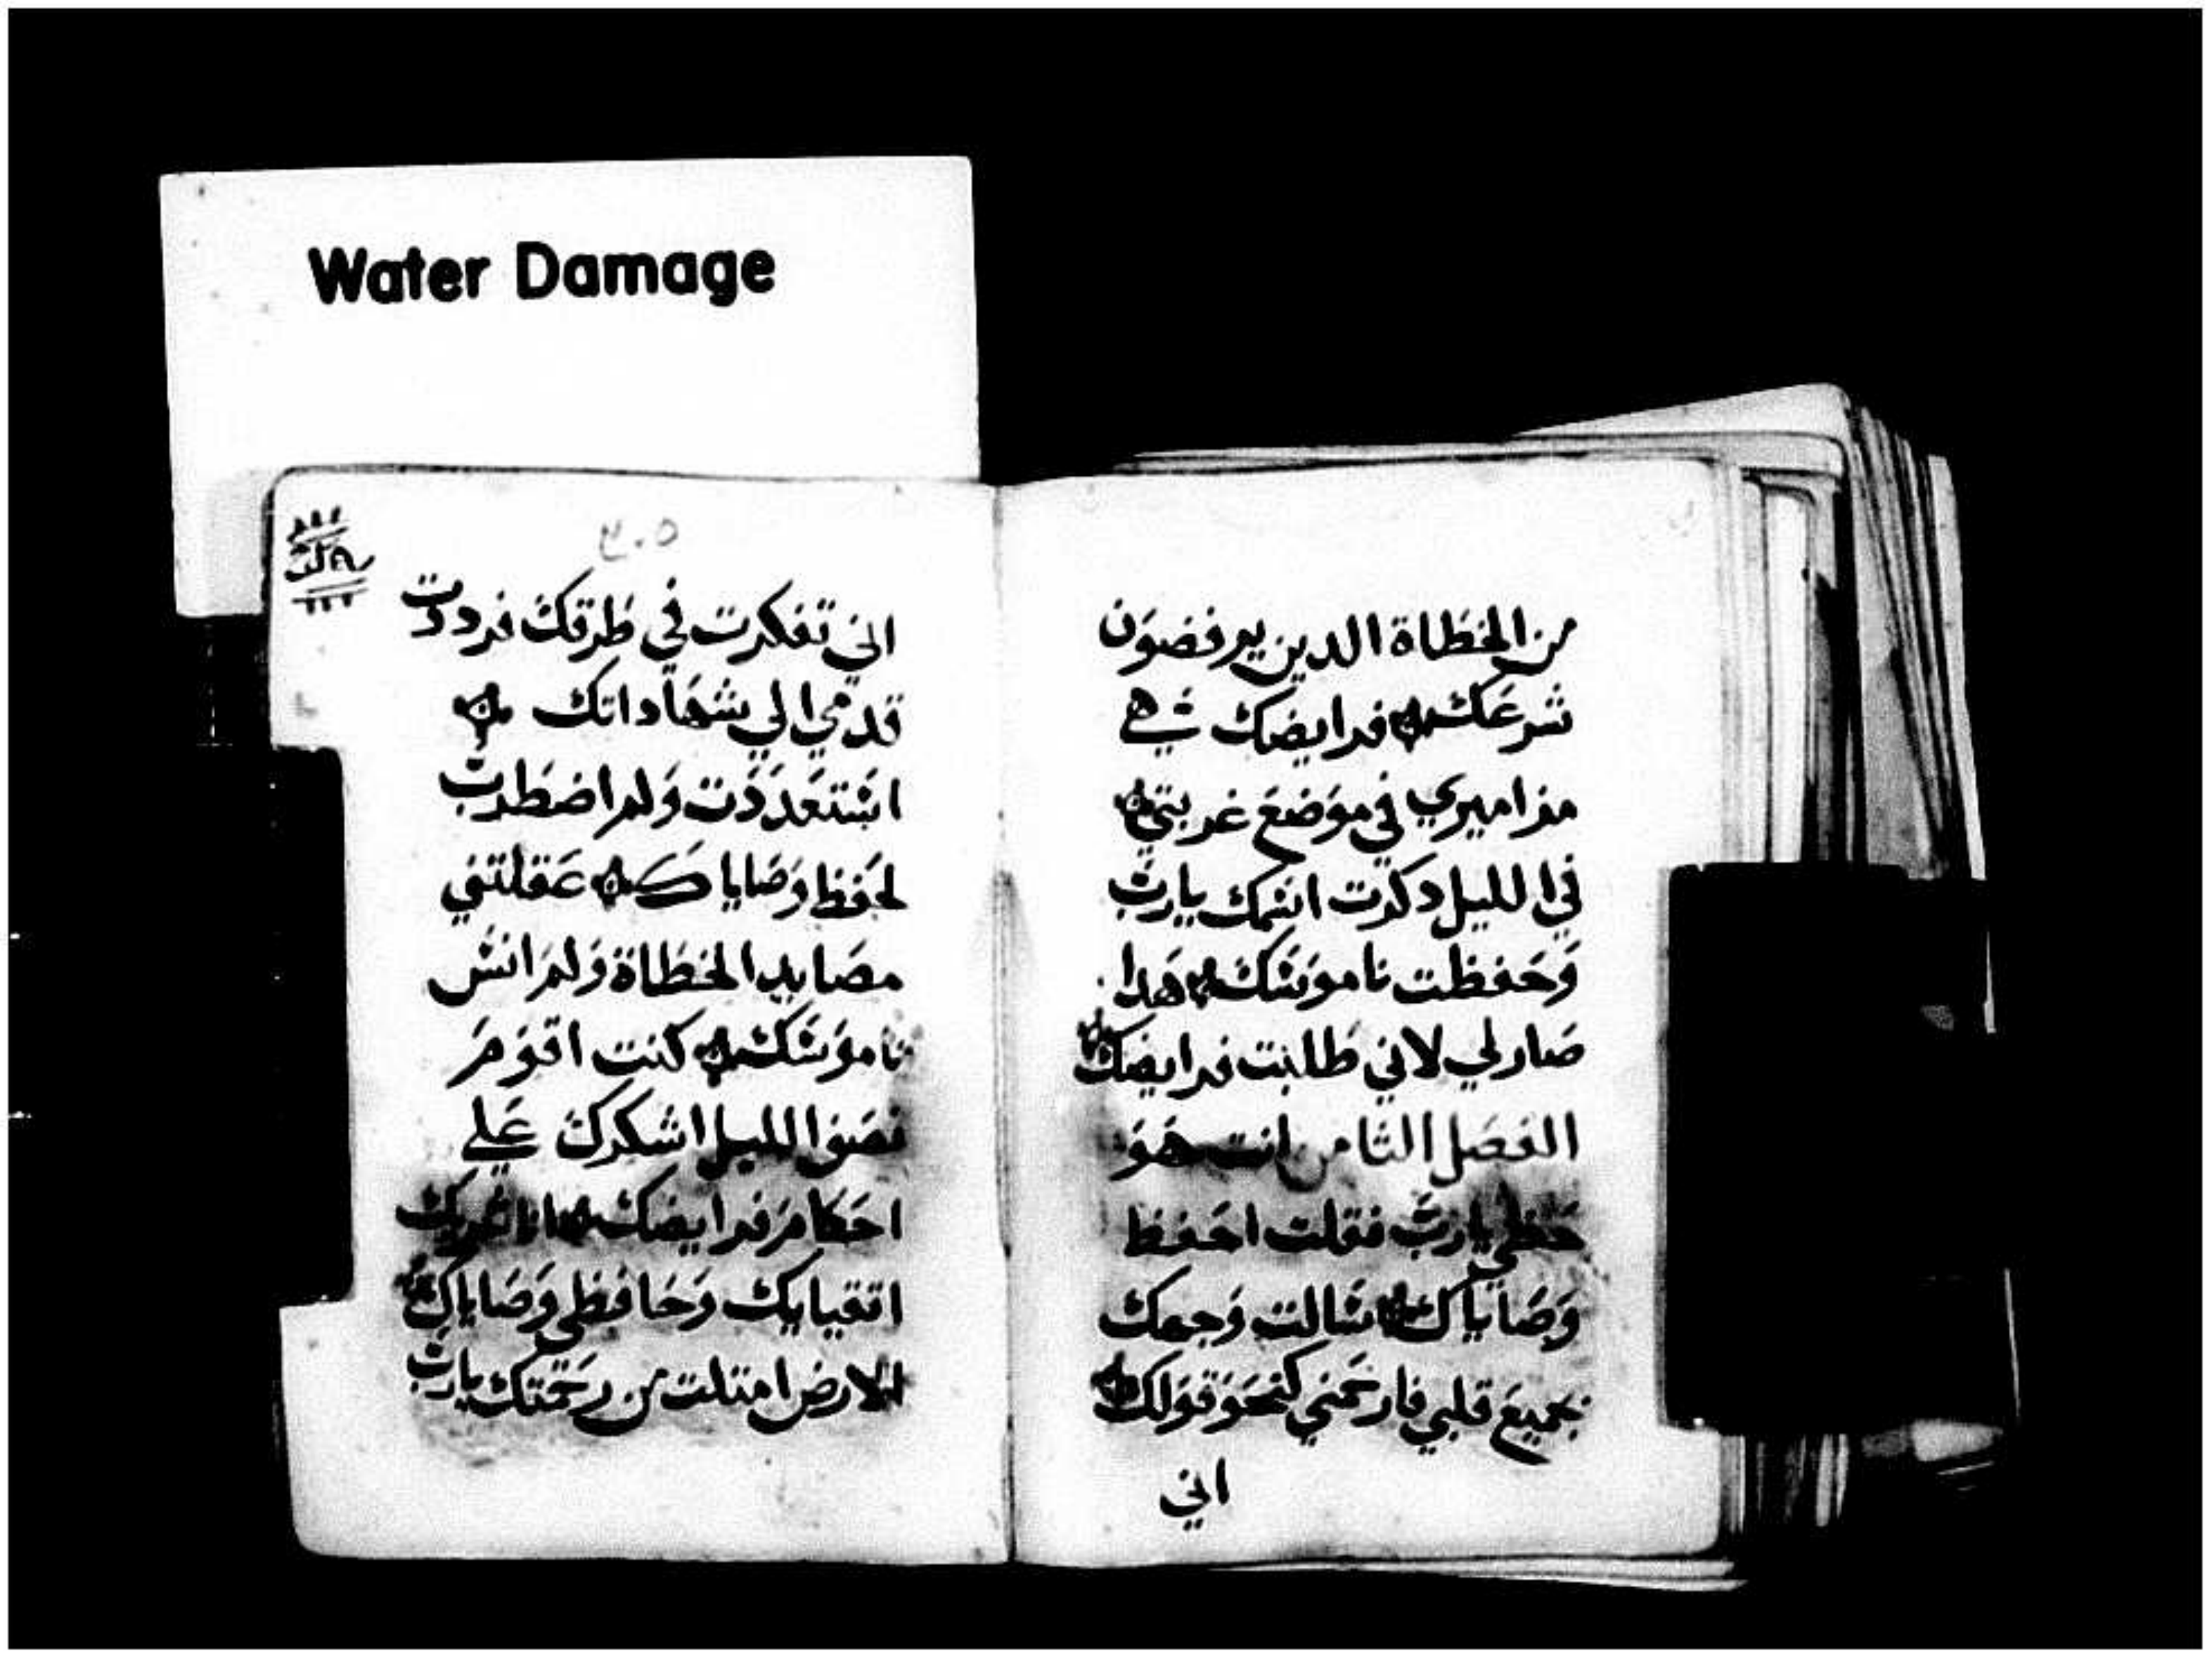 Water Damage
من الخطاة الدين يرفضون
شرعك فرايضك هي
مزاميري في موضع غربتي
في الليل دكرت اسمك يارب
وحفظت ناموسك هدا
صار لي لاني طلبت فرايضك
الفصل الثامن انت هو
حظي يارب فقلت احفظ
وصاياك سالت وجهك
بجميع قلبي فارحمني كنحو قولك
اني
٣٠٥
اني تفكرت في طرقك فرددت
قدمي الي شهاداتك
استعددت ولم اضطرب
لحفظ وصاياك عقلتني
مصايد الخطاة ولم انس
ناموسك كنت اقوم
نصف الليل اشكرك علي
احكام فرايضك انا شريك
اتقيايك وحافظي وصاياك
الارض امتلت من رحمتك يارب